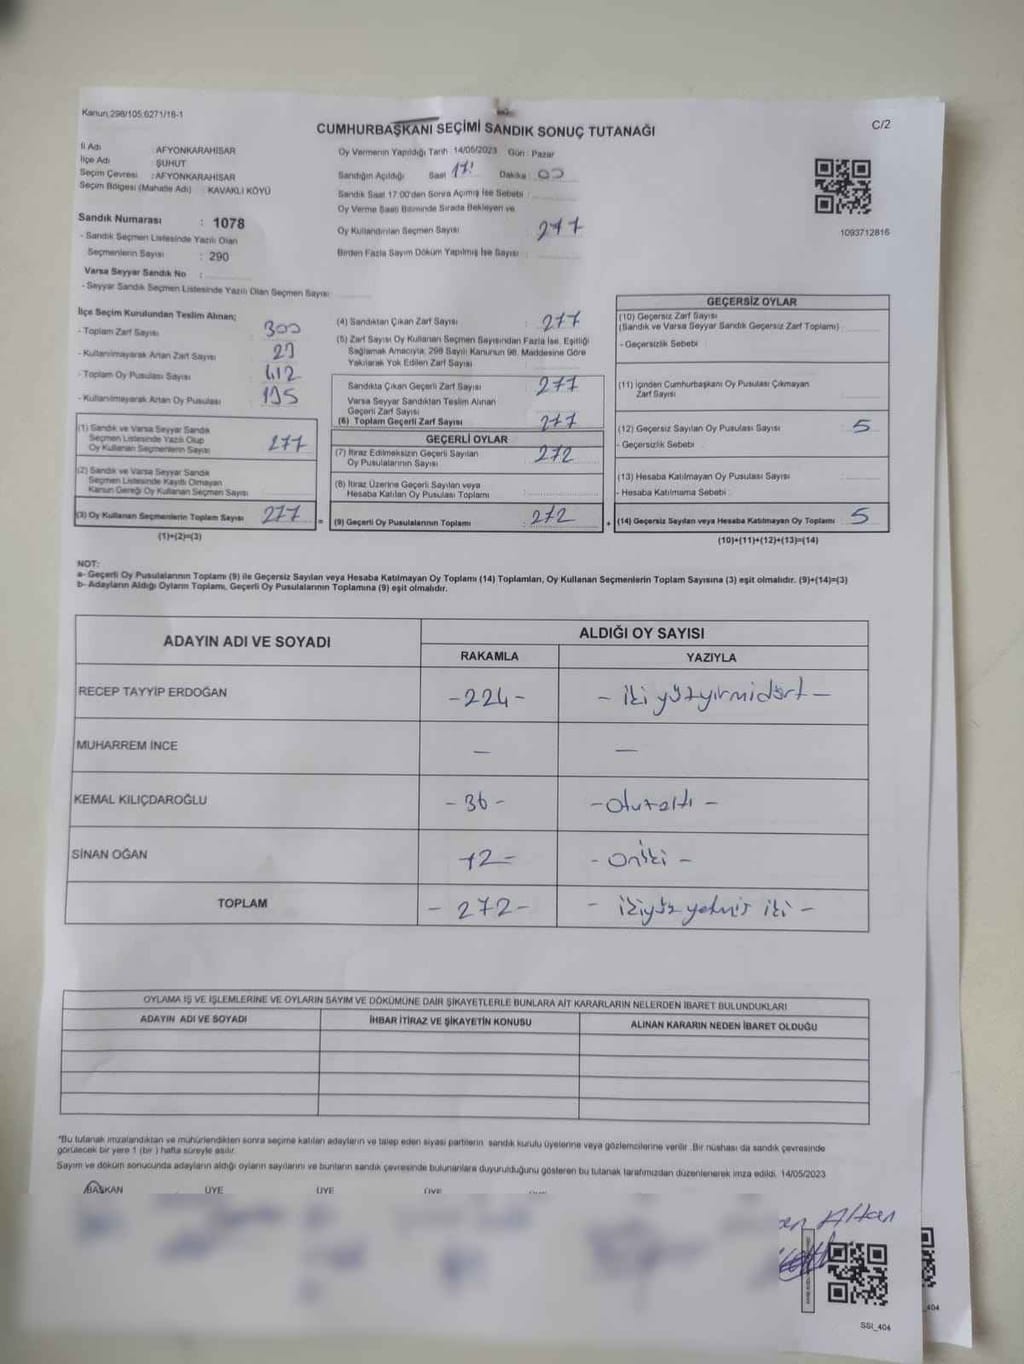 Kanun:298/105,6271/18-1
CUMHURBAŞKANI SEÇİMİ SANDIK SONUÇ TUTANAĞI
C/2
İl Adı : AFYONKARAHİSAR
İlçe Adı : ŞUHUT
Seçim Çevresi : AFYONKARAHİSAR
Seçim Bölgesi (Mahalle Adı) : KAVAKLI KÖYÜ
Oy Vermenin Yapıldığı Tarih :14/05/2023 Gün : Pazar
Sandığın Açıldığı Saat 17: Dakika : 00
Sandık Saat 17:00'den Sonra Açılmış İse Sebebi :
Oy Verme Saati Bitiminde Sırada Bekleyen ve
Oy Kullandırılan Seçmen Sayısı : 277
Birden Fazla Sayım Döküm Yapılmış İse Sayısı :
1093712816
Sandık Numarası : 1078
- Sandık Seçmen Listesinde Yazılı Olan
Seçmenlerin Sayısı : 290
Varsa Seyyar Sandık No :
- Seyyar Sandık Seçmen Listesinde Yazılı Olan Seçmen Sayısı
İlçe Seçim Kurulundan Teslim Alınan;
- Toplam Zarf Sayısı 300
- Kullanılmayarak Artan Zarf Sayısı
- Toplam Oy Pusulası Sayısı 412
- Kullanılmayarak Artan Oy Pusulası
(1) Sandık ve Varsa Seyyar Sandık
Seçmen Listesinde Yazılı Olup
Oy Kullanan Seçmenlerin Sayısı 277
(2) Sandık ve Varsa Seyyar Sandık
Seçmen Listesinde Kayıtlı Olmayan
Kanun Gereği Oy Kullanan Seçmen Sayısı
(3) Oy Kullanan Seçmenlerin Toplam Sayısı 277 =
(1)+(2)=(3)
(4) Sandıktan Çıkan Zarf Sayısı : 277
(5) Zarf Sayısı Oy Kullanan Seçmen Sayısından Fazla İse, Eşitliği
Sağlamak Amacıyla; 298 Sayılı Kanunun 98. Maddesine Göre
Yakılarak Yok Edilen Zarf Sayısı :
Sandıkta Çıkan Geçerli Zarf Sayısı : 277
Varsa Seyyar Sandıktan Teslim Alınan
Geçerli Zarf Sayısı
(6) Toplam Geçerli Zarf Sayısı : 277
GEÇERLİ OYLAR
(7) İtiraz Edilmeksizin Geçerli Sayılan
Oy Pusulalarının Sayısı : 272
(8) İtiraz Üzerine Geçerli Sayılan veya
Hesaba Katılan Oy Pusulası Toplamı
(9) Geçerli Oy Pusulalarının Toplamı : 272 +
GEÇERSİZ OYLAR
(10) Geçersiz Zarf Sayısı
(Sandık ve Varsa Seyyar Sandık Geçersiz Zarf Toplamı)
- Geçersizlik Sebebi :
(11) İçinden Cumhurbaşkanı Oy Pusulası Çıkmayan
Zarf Sayısı :
(12) Geçersiz Sayılan Oy Pusulası Sayısı : 5
- Geçersizlik Sebebi :
(13) Hesaba Katılmayan Oy Pusulası Sayısı :
- Hesaba Katılmama Sebebi :
(14) Geçersiz Sayılan veya Hesaba Katılmayan Oy Toplamı 5
(10)+(11)+(12)+(13)=(14)
NOT:
a- Geçerli Oy Pusulalarının Toplamı (9) ile Geçersiz Sayılan veya Hesaba Katılmayan Oy Toplamı (14) Toplamları, Oy Kullanan Seçmenlerin Toplam Sayısına (3) eşit olmalıdır. (9)+(14)=(3)
b- Adayların Aldığı Oyların Toplamı, Geçerli Oy Pusulalarının Toplamına (9) eşit olmalıdır.
ADAYIN ADI VE SOYADI ALDIĞI OY SAYISI
RAKAMLA YAZIYLA
RECEP TAYYİP ERDOĞAN -224- - iki yüzyirmidört -
MUHARREM İNCE - -
KEMAL KILIÇDAROĞLU -36- - otuzaltı -
SİNAN OĞAN -12- - oniki -
TOPLAM -272- - ikiyüz yetmiş iki -
OYLAMA İŞ VE İŞLEMLERİNE VE OYLARIN SAYIM VE DÖKÜMÜNE DAİR ŞİKAYETLERLE BUNLARA AİT KARARLARIN NELERDEN İBARET BULUNDUKLARI
ADAYIN ADI VE SOYADI İHBAR İTİRAZ VE ŞİKAYETİN KONUSU ALINAN KARARIN NEDEN İBARET OLDUĞU
*Bu tutanak imzalandıktan ve mühürlendikten sonra seçime katılan adayların ve talep eden siyasi partilerin sandık kurulu üyelerine veya gözlemcilerine verilir. Bir nüshası da sandık çevresinde
görülecek bir yere 1 (bir ) hafta süreyle asılır.
Sayım ve döküm sonucunda adayların aldığı oyların sayılarını ve bunların sandık çevresinde bulunanlara duyurulduğunu gösteren bu tutanak tarafımızdan düzenlenerek imza edildi. 14/05/2023
BAŞKAN ÜYE ÜYE ÜYE
Altan
SSI_404
_404